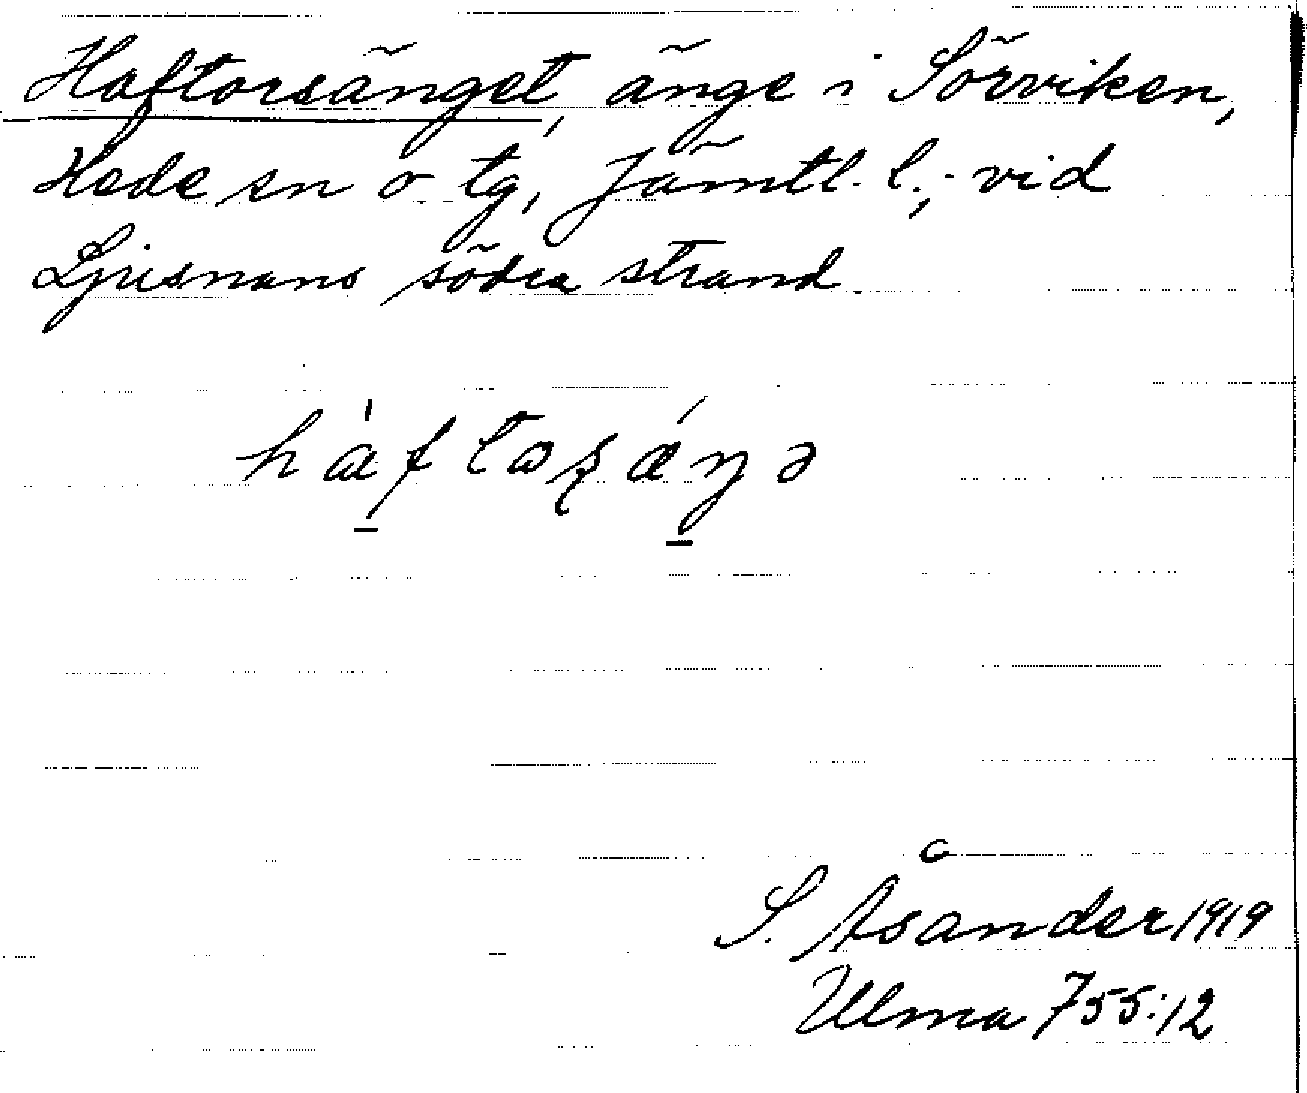 Haftorsänget, änge i Sörviken,
Hede sn o tg, Jämtl. l.; vid
Ljusnans södra strand
S. Åsander 1919
Ulma 755:12